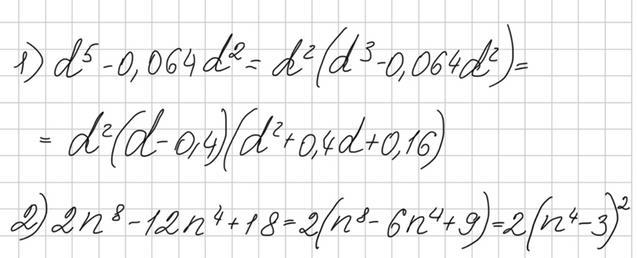 1) d⁵ - 0,064d² = d²(d³ - 0,064d²) =
= d²(d - 0,4)(d² + 0,4d + 0,16)
2) 2n⁸ - 12n⁴ + 18 = 2(n⁸ - 6n⁴ + 9) = 2(n⁴ - 3)²